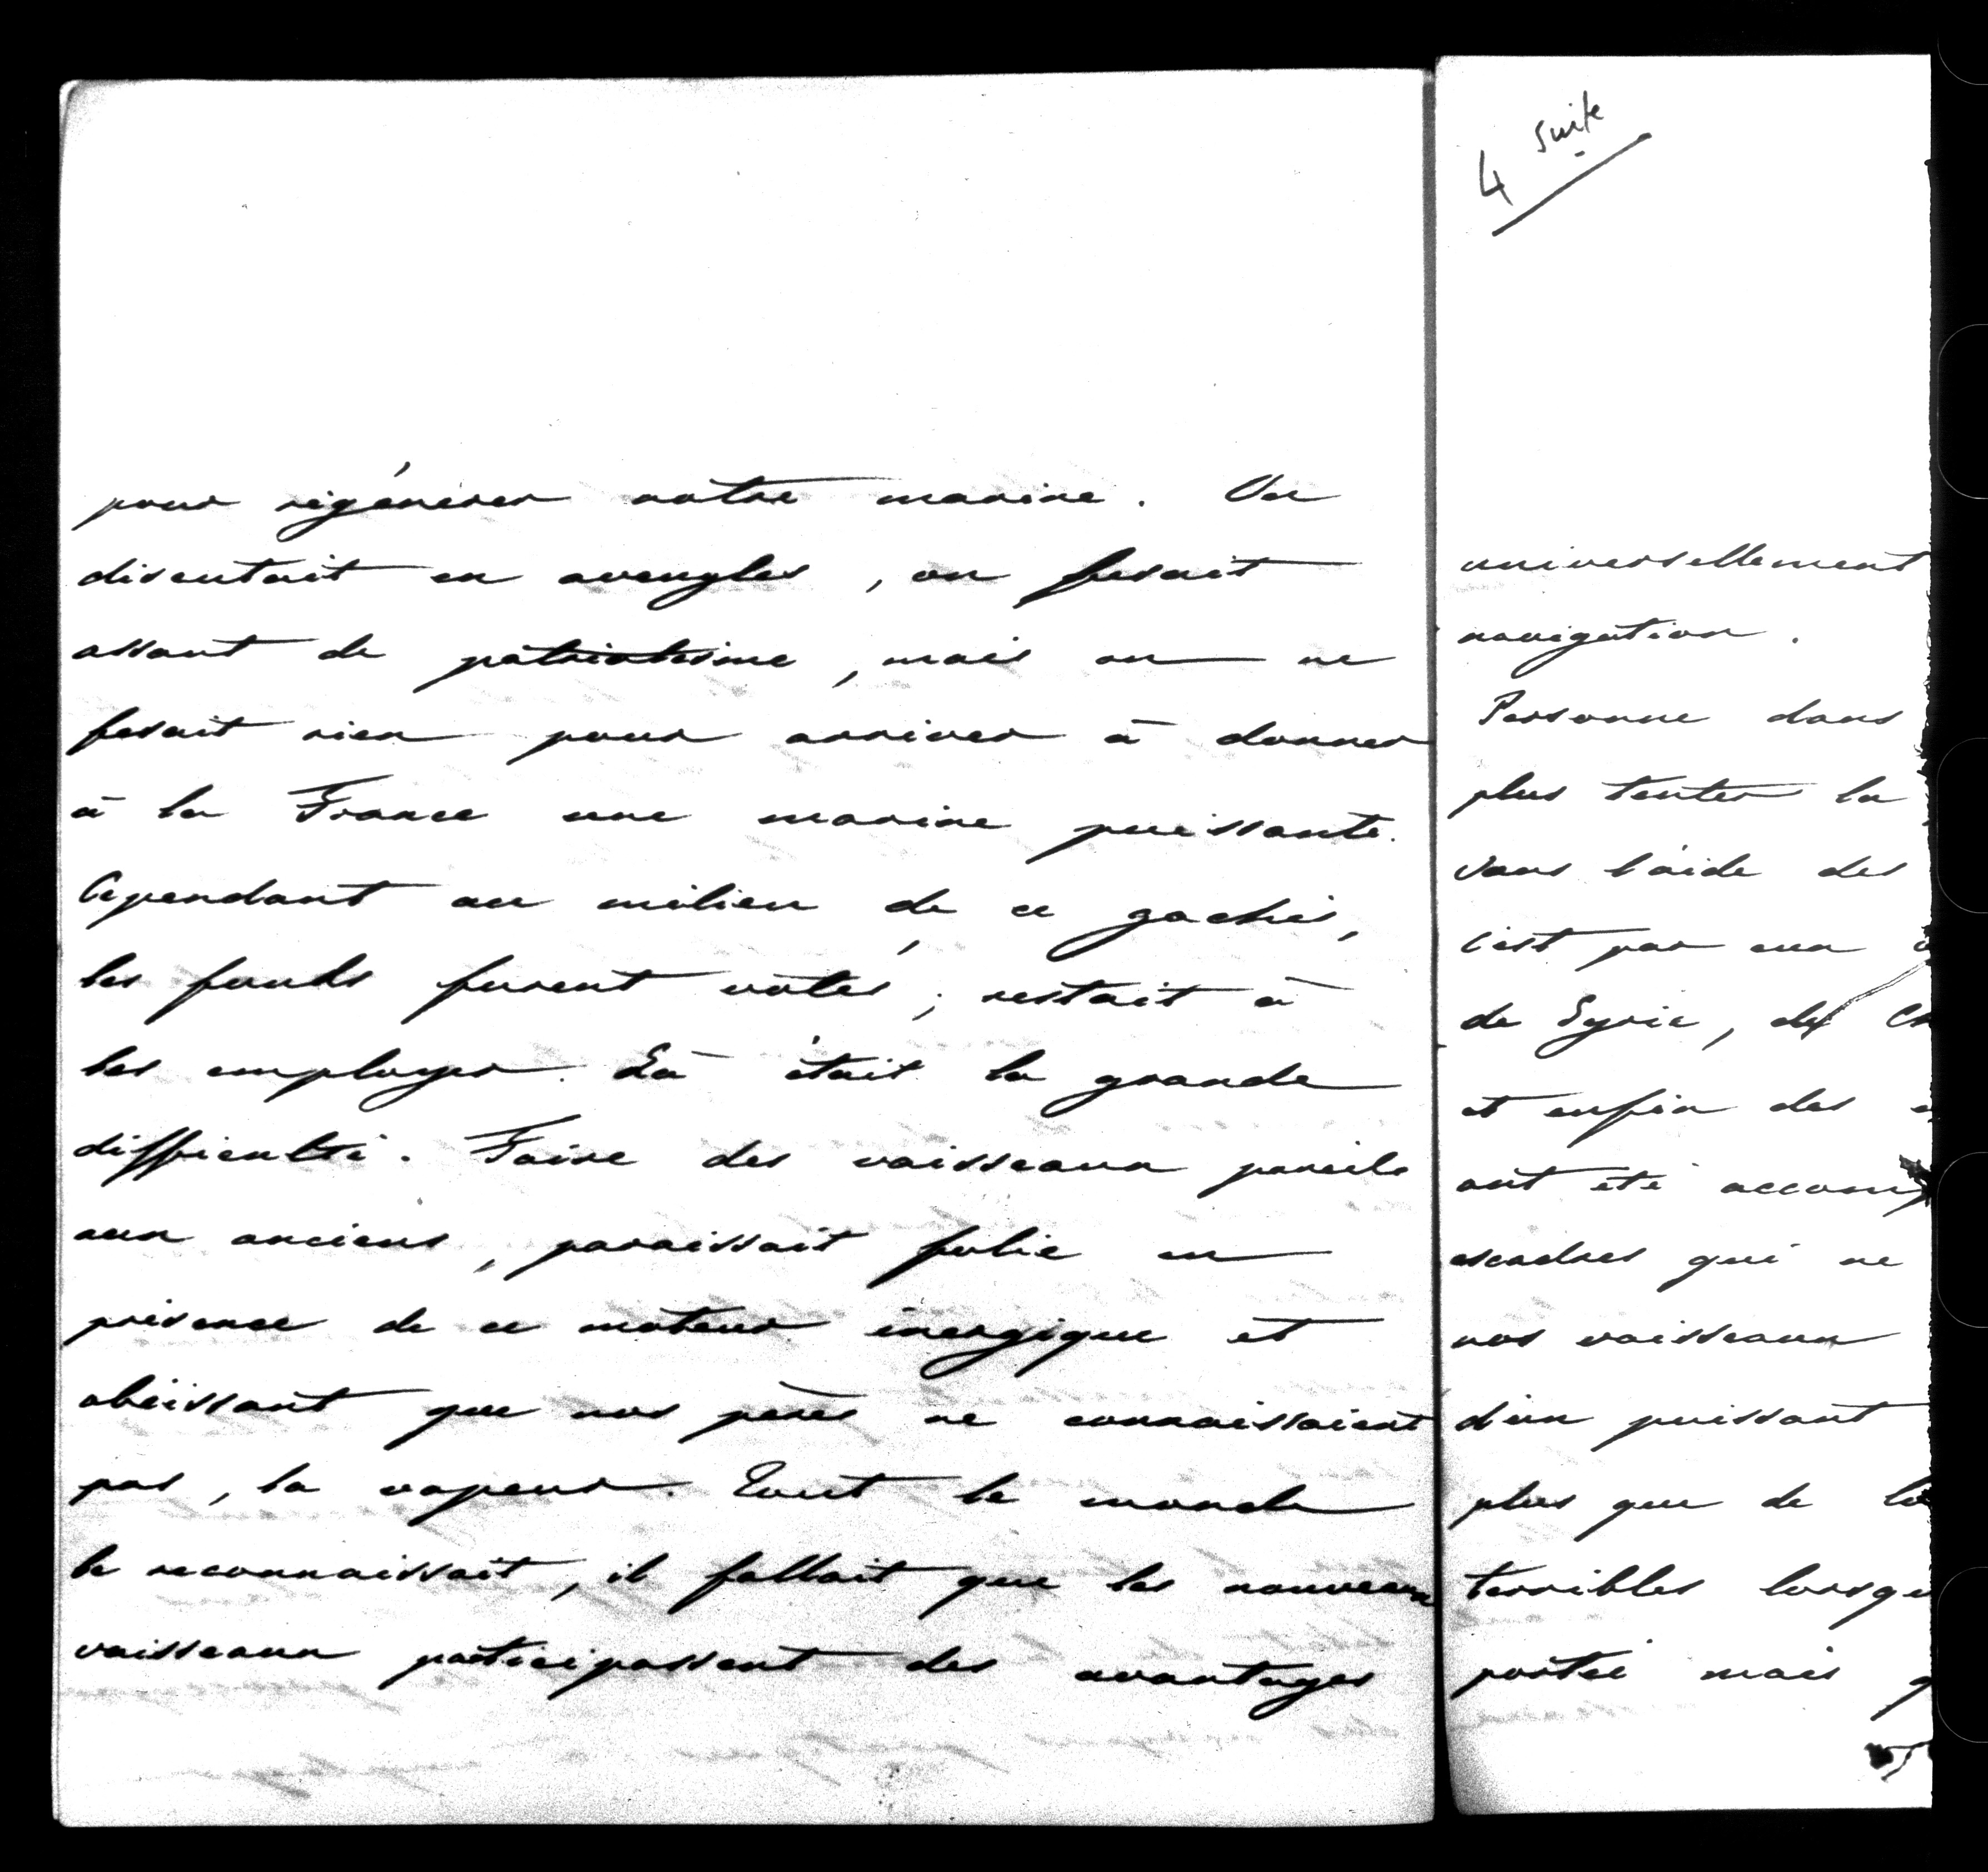 pour régénérer notre marine. On
discutait en aveugles, on fesait
assaut de patriotisme, mais on ne
fesait rien pour arriver à donner
à la France une marine puissante.
Cependant au milieu de ce gachis,
les fonds furent votés ; restait à
les employer. Là était la grande
difficulté. Faire des vaisseaux pareils
aux anciens, paraissait folie en
présence de ce moteur énergique et
obéissant que nos pères ne connaissaient
pas, la vapeur. Tout le monde
le reconnaissait, il fallait que les nouveaux
vaisseaux participassent des avantages
4 suite
universellement
navigation.
Personne dans
plus tenter la
sans l'aide des
c'est par eux
de Syrie, de
et enfin des
ont été accomp
escadres qui ne
nos vaisseaux
d'un puissant
plus que de
terribles lorsqu
portée mais